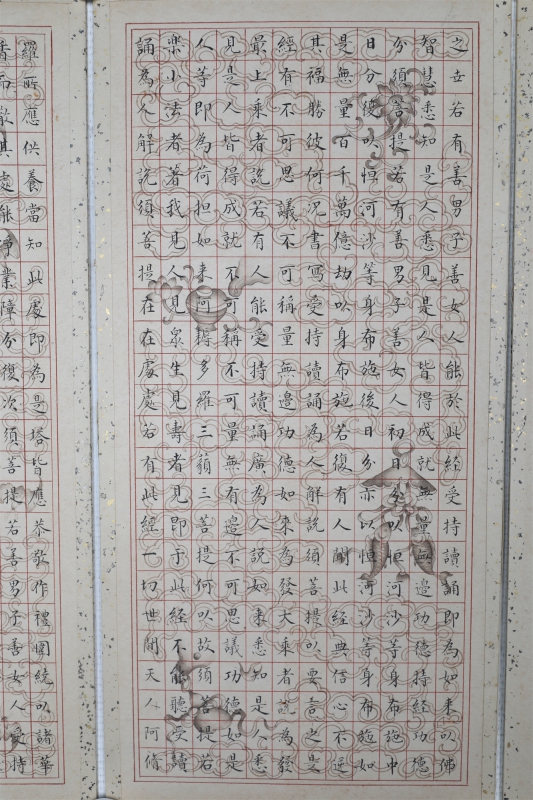 之世若有善男子善女人能於此經受持讀誦即為如來以佛
智慧悉知是人悉見是人皆得成就無量無邊功德持經功德
分須菩提若有善男子善女人初日分以恒河沙等身布施中
日分復以恒河沙等身布施後日分亦以恒河沙等身布施如
是無量百千萬億劫以身布施若復有人聞此經典信心不逆
其福勝彼何況書寫受持讀誦為人解說須菩提以要言之是
經有不可思議不可稱量無邊功德如來為發大乘者說為發
最上乘者說若有人能受持讀誦廣為人說如來悉知是人悉
見是人皆得成就不可稱不可量無有邊不可思議功德如是
人等即為荷担如來阿耨多羅三藐三菩提何以故須菩提若
樂小法者著我見人見眾生見壽者見即于此經不能聽受讀
誦為人解說須菩提在在處處若有此經一切世間天人阿脩
羅所應供養當知此處即為是塔皆應恭敬作禮圍繞以諸華
香而散其處能淨業障分復次須菩提若善男子善女人受持